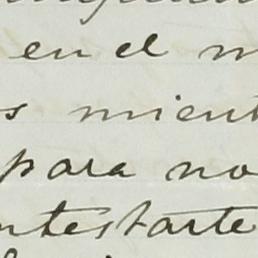 en el m
s mient
para no
ntestarte